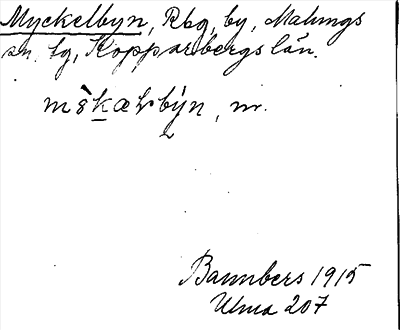 Myckelbyn, Rbg, by, Malungs
sn, tg, Kopparbergs län.
Bannbers 1915
Ulma 207